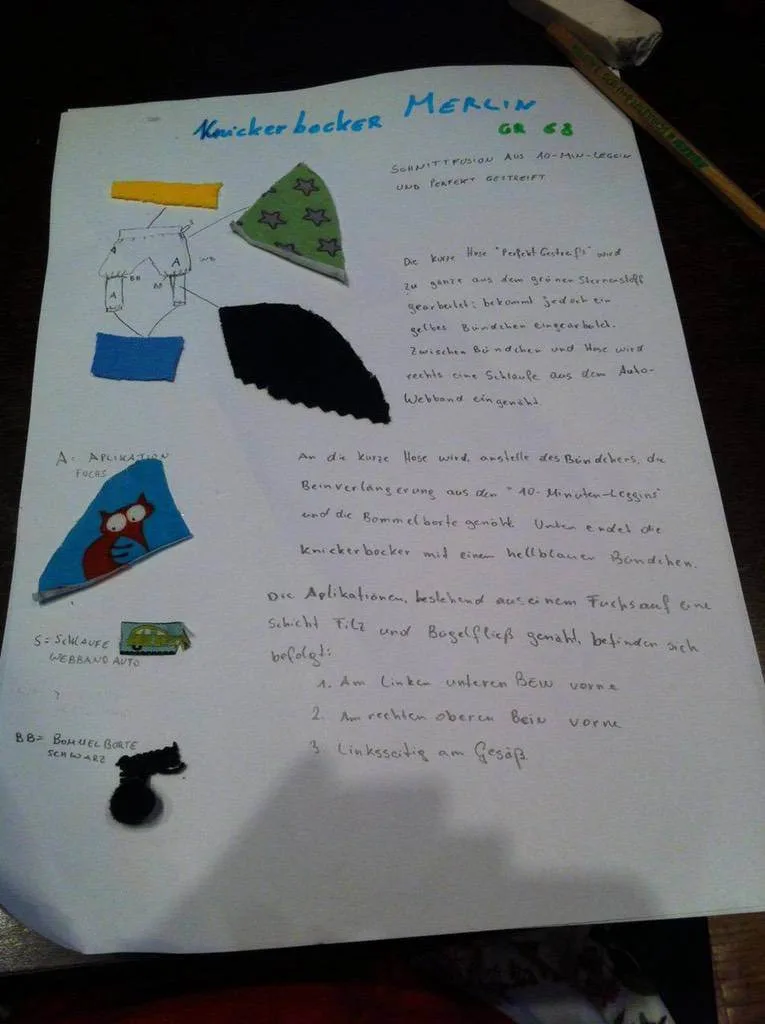 Knickerbocker MERLIN
GR 68
SCHNITTFUSION AUS 10-MIN-LEGGIN
UND PERFEKT GESTREIFT
Die kurze Hose "Perfekt Gestreift" wird
zu gänze aus dem grünen Sternenstoff
gearbeitet; bekommt jedoch ein
gelbes Bündchen eingearbeitet.
Zwischen Bündchen und Hose wird
rechts eine Schlaufe aus dem Auto-
Webband eingenäht.
S
A
A
WB
BB
BB
A
A = APLIKATION
FUCHS
An die kurze Hose wird, anstelle des Bündchens, die
Beinverlängerung aus den "10-Minuten-Leggins"
und die Bommelborte genäht. Unten endet die
Knickerbocker mit einem hellblauen Bündchen.
Die Aplikationen, bestehend aus einem Fuchs auf eine
Schicht Filz und Bügelfließ genäht, befinden sich
befolgt:
1. Am Linken unteren BEIN vorne
2. Am rechten oberen Bein vorne
3 Linksseitig am Gesäß
S = SCHLAUFE
WEBBAND AUTO
BB = BOMMELBORTE
SCHWARZ